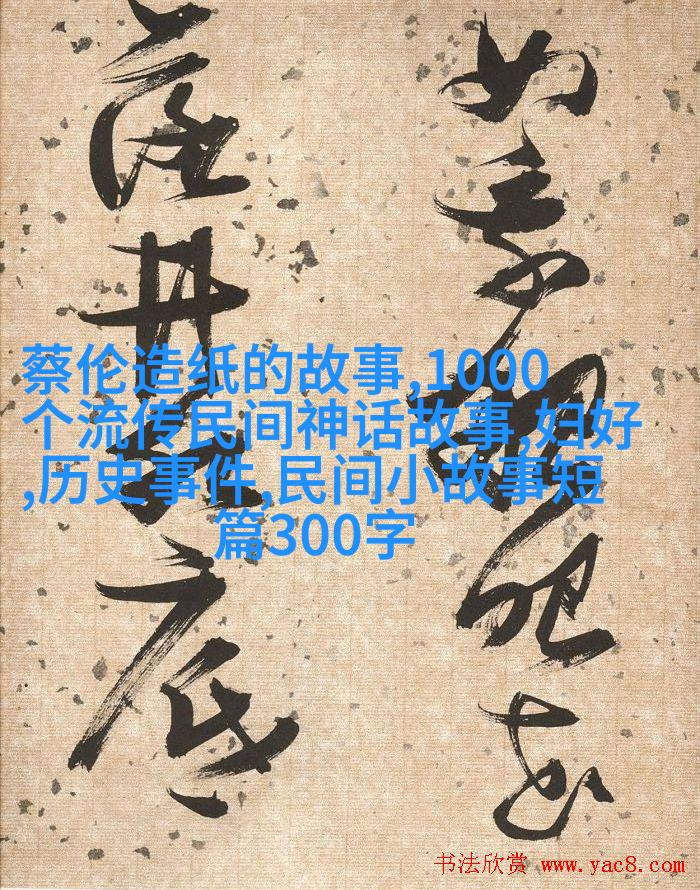 如
落井底
蔡伦造纸的故事,1000
个流传民间神话故事,妇好
,历史事件,民间小故事短
篇300字
书法欣赏 www.yac8.com